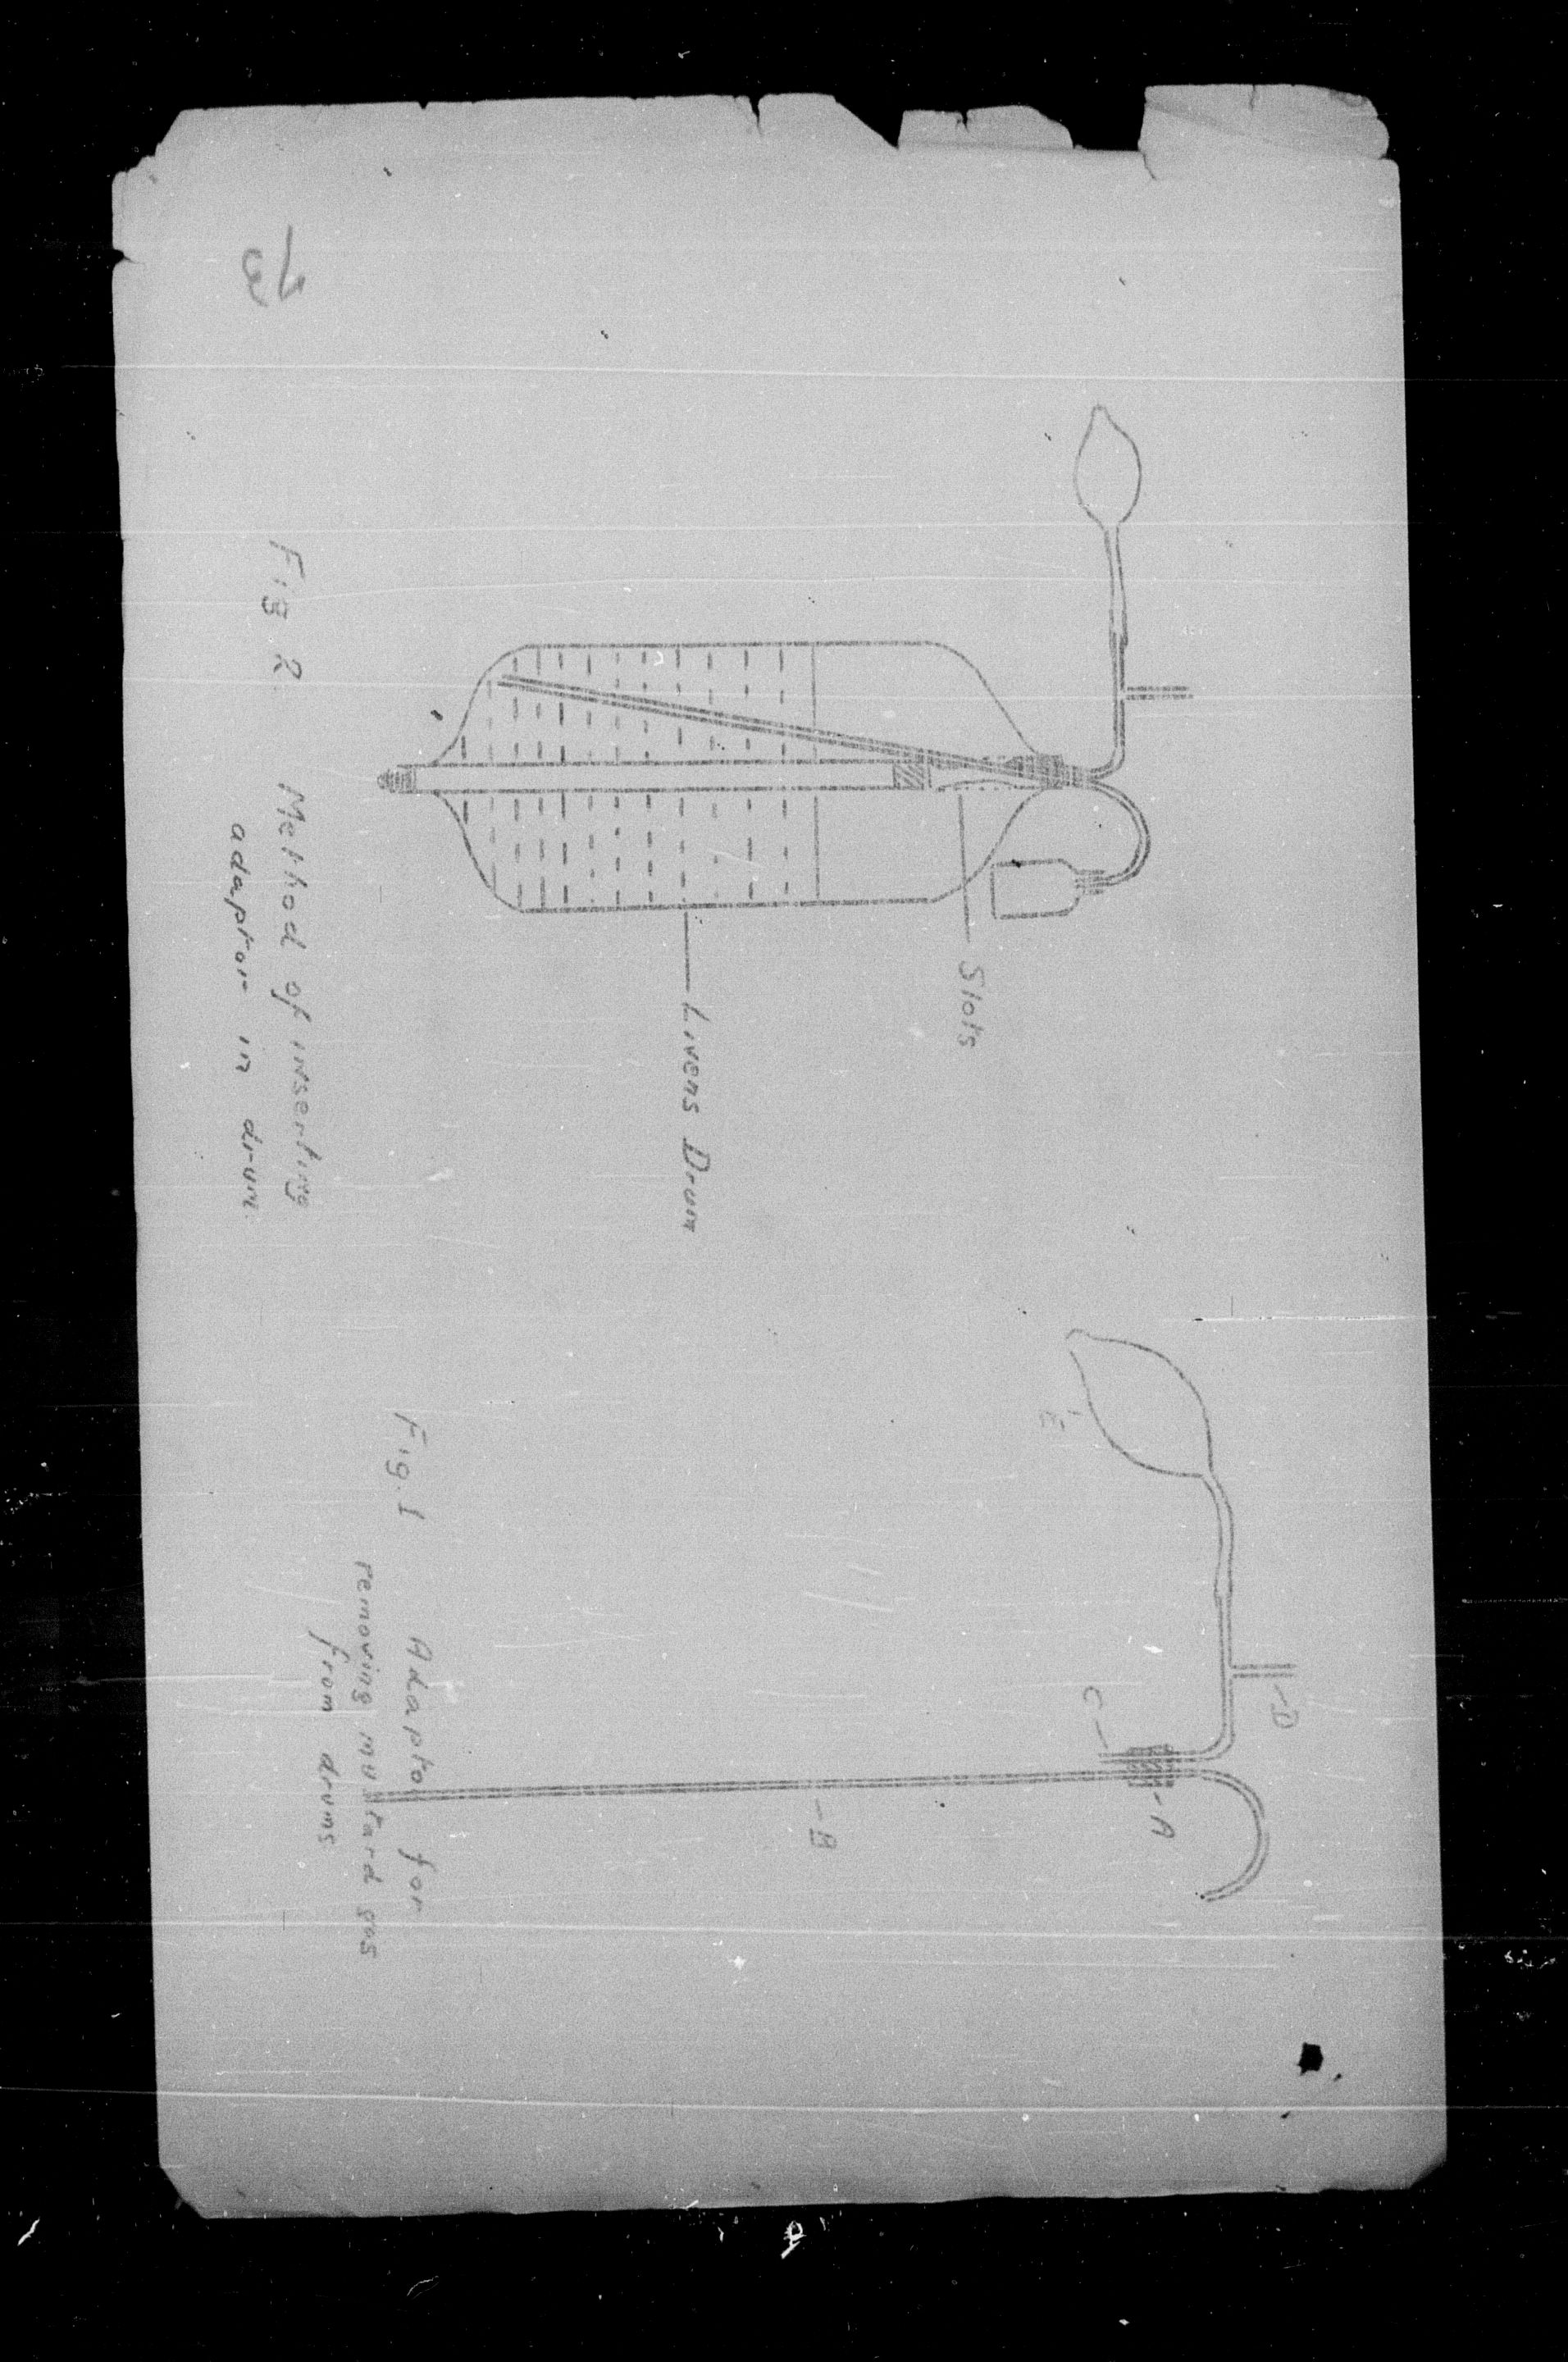 Slots
Livens Drum
Fig 2 Method of inserting
adaptor in drum.
D
E
C
A
B
Fig. 1 Adaptor for
removing mustard gas
from drums